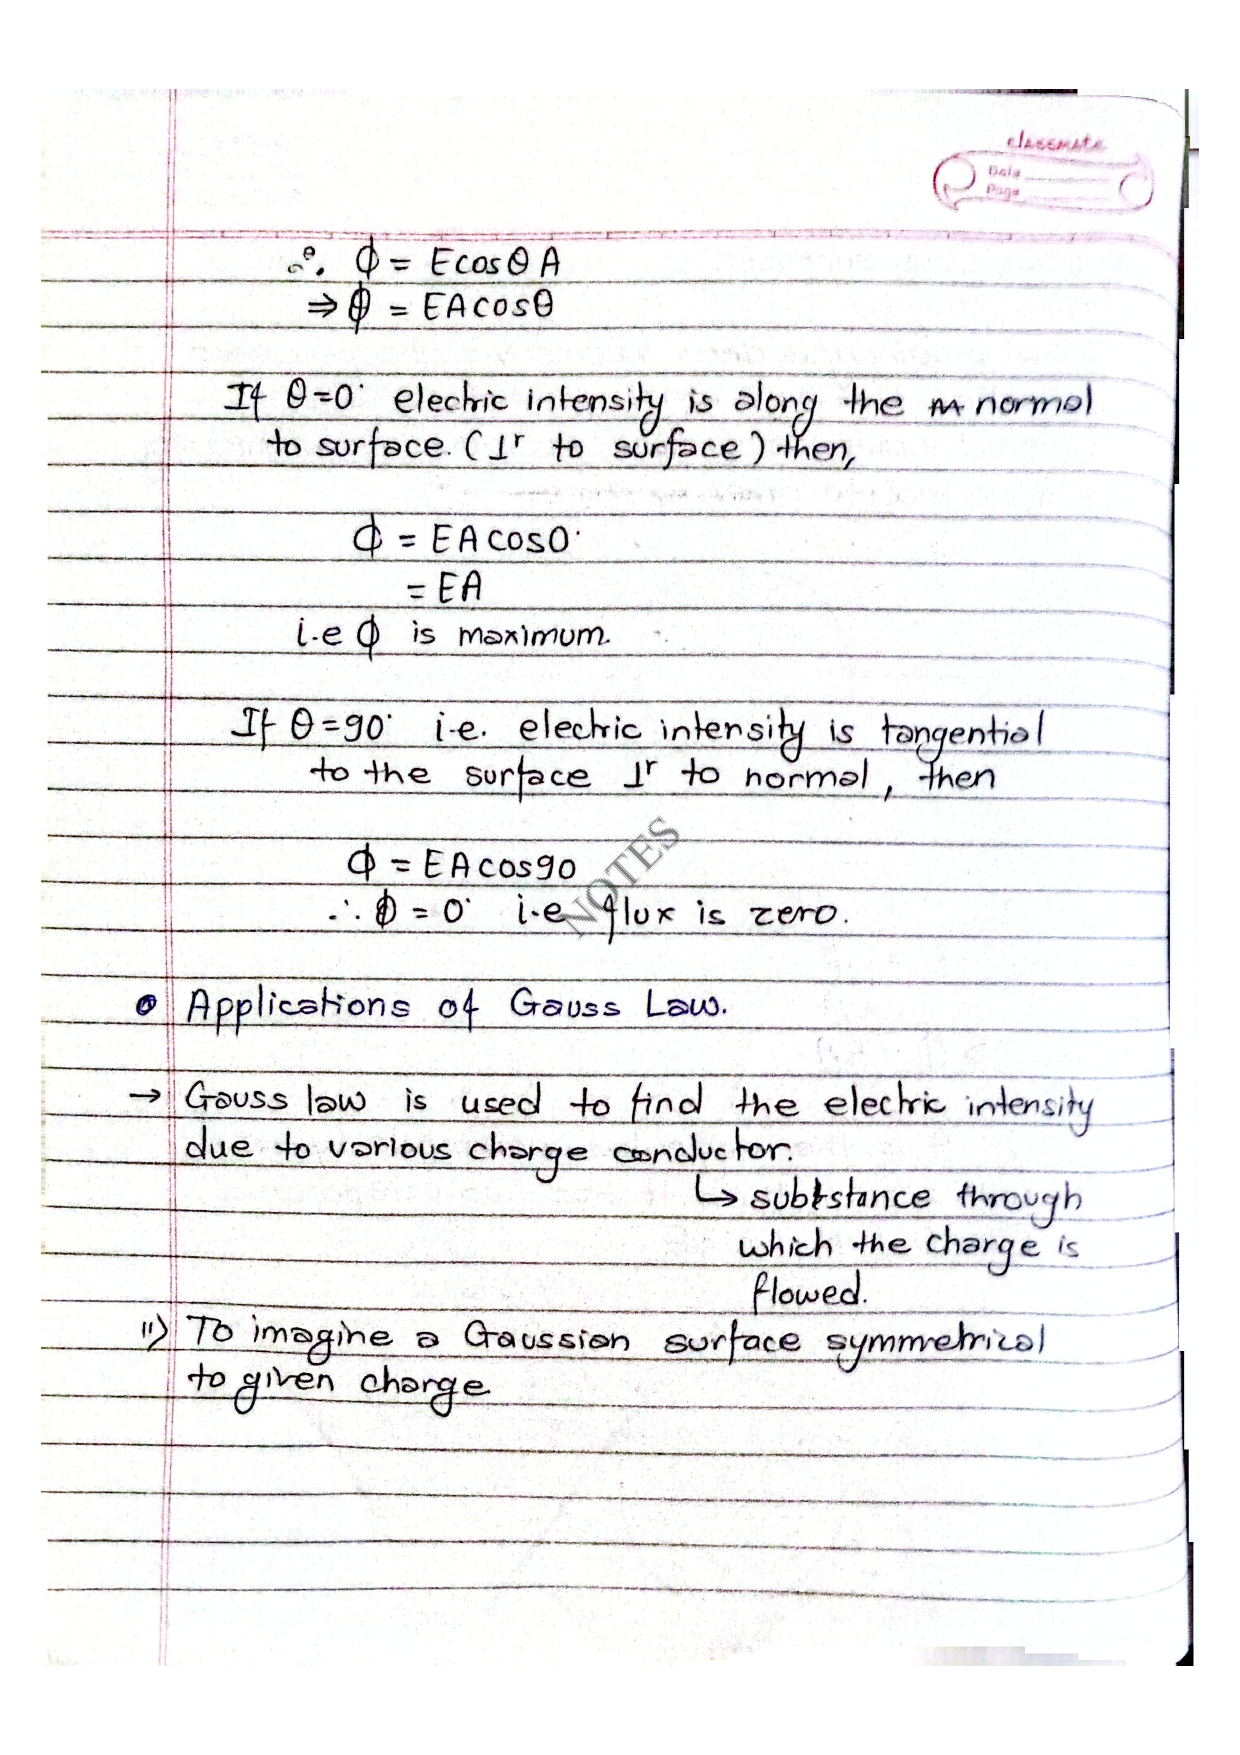 classmate
Date
Page
∴ ϕ = Ecosθ A
⇒ ϕ = EAcosθ
If θ=0° electric intensity is along the normal
to surface. (⊥r to surface) then,
ϕ = EAcos0°
= EA
i.e ϕ is maximum.
If θ=90° i.e. electric intensity is tangential
to the surface ⊥r to normal, then
ϕ = EAcos90
∴ ϕ = 0° i.e flux is zero.
NOTES
Applications of Gauss Law.
→ Gauss law is used to find the electric intensity
due to various charge conductor.
↳ substance through
which the charge is
flowed.
ii) To imagine a Gaussian surface symmetrical
to given charge